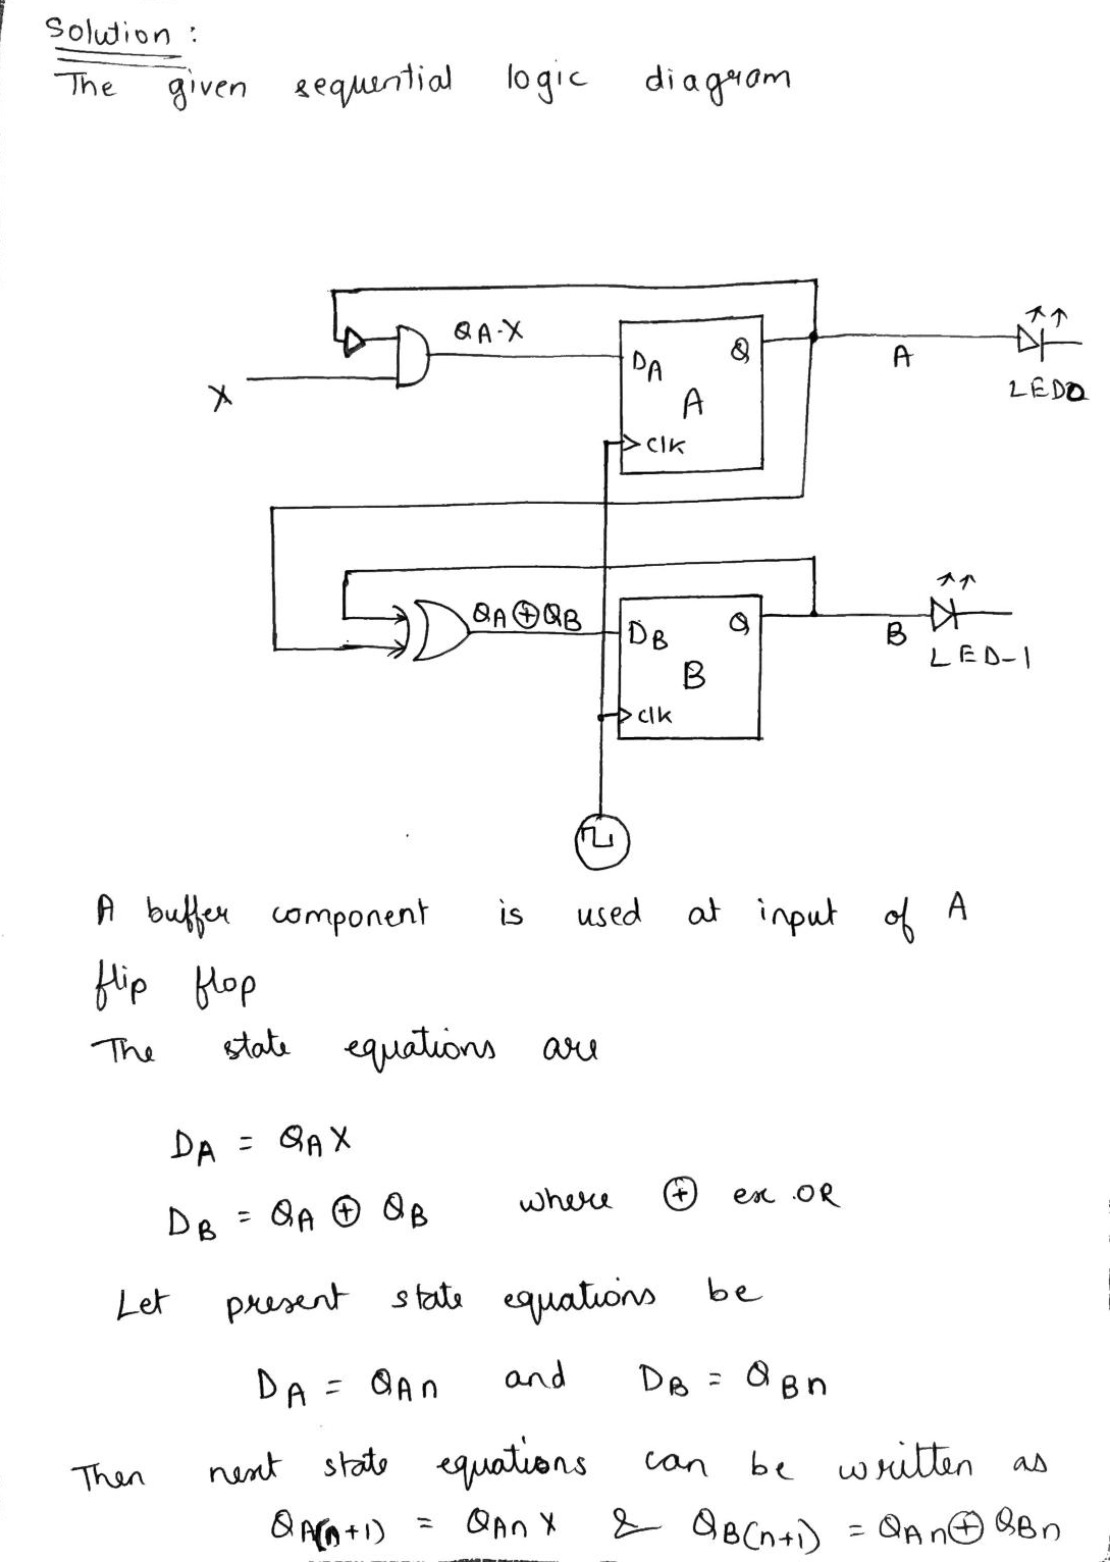 Solution :
The given sequential logic diagram
QA·X
X
DA
Q
A
>CLK
A
LED0
QA⊕QB
DB
Q
B
>CLK
B
LED-1
A buffer component is used at input of A
flip flop
The state equations are
DA = QA X
DB = QA ⊕ QB where ⊕ ex.OR
Let present state equations be
DA = QAn and DB = QBn
Then next state equations can be written as
QA(n+1) = QAn X & QB(n+1) = QAn ⊕ QBn